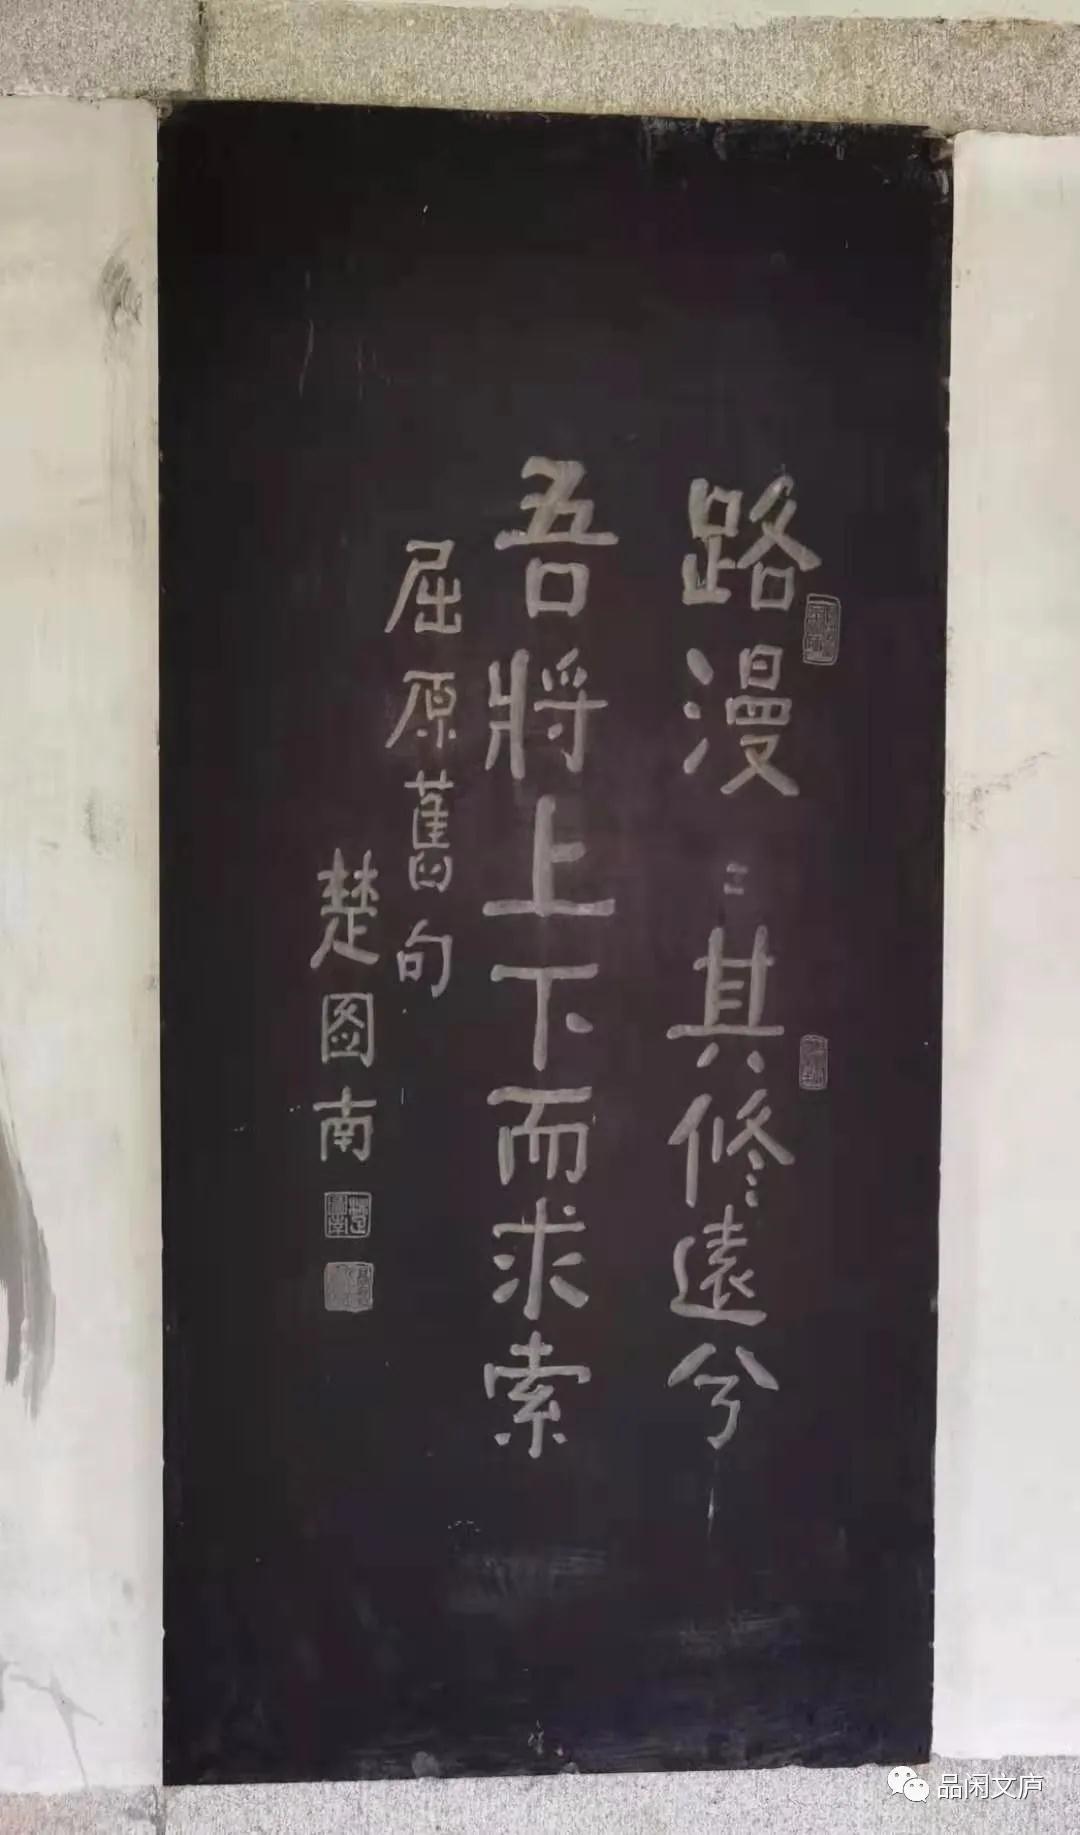 路漫〻其修遠兮
吾將上下而求索
屈原舊句
楚图南
品闲文庐